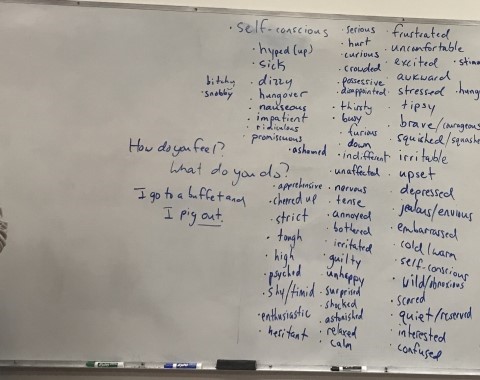 · self-conscious
· hyped (up)
· sick
bitchy
· snobby
· dizzy
· hungover
· nauseous
· impatient
· ridiculous
promiscuous
· ashamed
How do you feel?
What do you do?
I go to a buffet and
I pig out.
· apprehensive
· cheered up
· strict
· tough
· high
· psyched
· shy/timid
· enthusiastic
· hesitant
· serious
· hurt
· curious
· crowded
· possessive
· disappointed
· thirsty
· busy
· furious
· down
· indifferent
· unaffected
· nervous
· tense
· annoyed
· bothered
· irritated
· guilty
· unhappy
· surprised
· shocked
· astonished
· relaxed
· calm
· frustrated
· uncomfortable
· excited
· awkward
· stressed
· tipsy
· brave/courageous
· squished/squashed
· irritable
· upset
· depressed
· jealous/envious
· embarrassed
· cold/warm
· self-conscious
· wild/obnoxious
· scared
· quiet/reserved
· interested
· confused